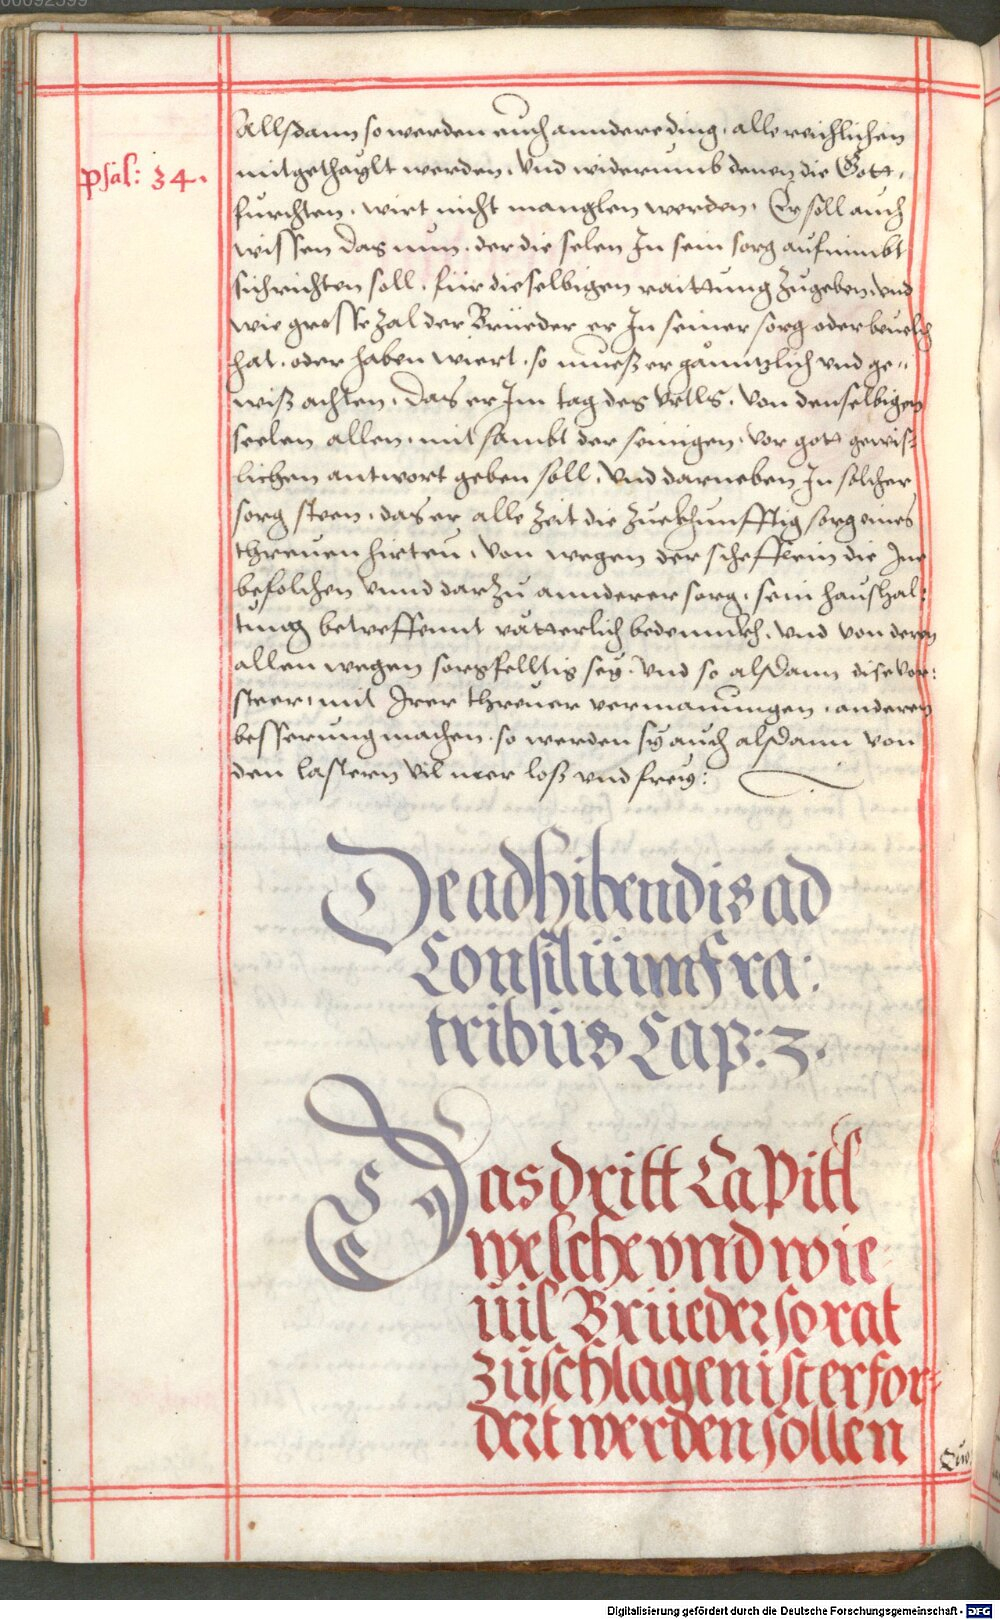 00092599
Allsdann so werden euch annder ding, alle reichlichen
psal: 34.
mitgethaylt werden, Vnd widerumb denen die Gott,
furchten, wirt nicht manglen werden, Er soll auch
wissen das nun, der die selen In sein sorg aufnimbt
sich richten soll, für dieselbigen raittung zugeben, vnd
wie grosse zal der Brüeder er In seiner sorg oder beuelch
hat, oder haben wiert, so mueß er gänntzlich vnd ge-
wiß achten, das er Im tag des Vrtls, von denselbigen
seelen allen, mit sambt der seinigen, vor gott gewiß-
lichen antwort geben soll, Vnd darneben In solcher
sorg steen, das er alle zeit die zuekhunfftig sorg eines
threuen hirten, von wegen der scheflein die Ime
befolchen vnnd darzu annderer sorg, sein haushal-
tung betreffennt vätterlich bedennkh, vnd von deren
allen wegen sorgfelltig sey, Vnd so alsdann dise vor:
steer, mit Irer threuer vermanungen, anderen
besserung machen, so werden sy auch alsdann von
den lastern vil mer loß vnd frey:
De adhibendis ad
Consiliüm fra:
tribüs Cap: 3.
Das dritt CaPitl
welche vnd wie
uil Brüeder so rat
züschlagen ist erfor-
dert werden sollen
Digitalisierung gefördert durch die Deutsche Forschungsgemeinschaft - DFG